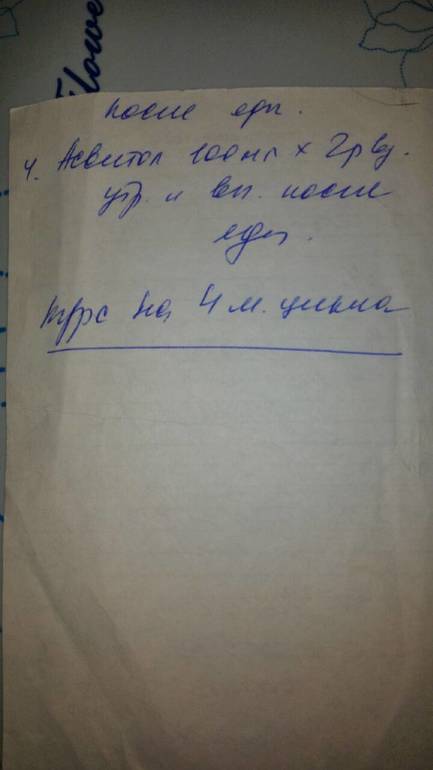 Flowe
после еды.
4. Асвитол 100мг × 2р в д.
утр. и веч. после
еды.
курс на 4 м. цикла